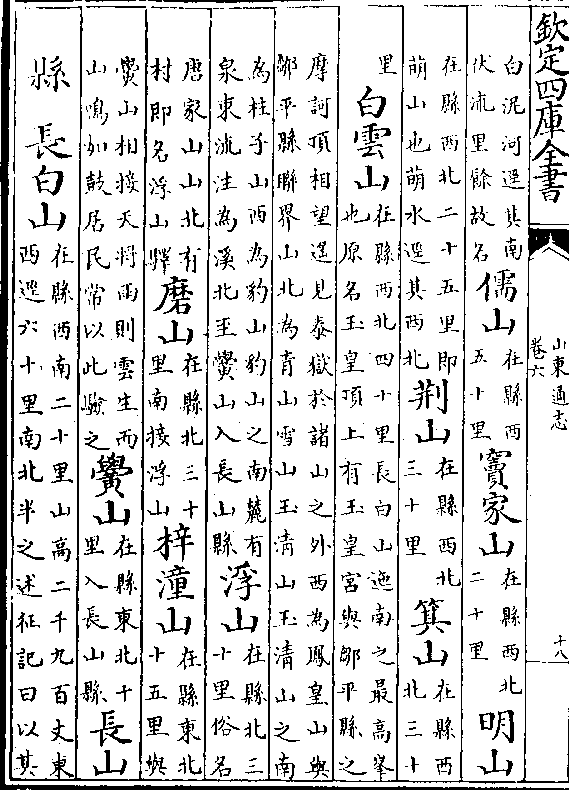 欽定四庫全書
山東通志
卷六
十八
白泥河遶其南
伏流里餘故名
儒山
在縣西
五十里
竇家山
在縣西北
二十里
明山
在縣西北二十五里即
萌山也萌水遶其西北
荆山
在縣西北
三十里
箕山
在縣西
北三十
里
白雲山
在縣西北四十里長白山迤南之最高峯
也原名玉皇頂上有玉皇宫與鄒平縣之
摩訶頂相望遥見泰嶽於諸山之外西為鳳皇山與
鄒平縣聯界山北為青山雪山玉清山玉清山之南
為柱子山西為豹山豹山之南麓有
泉東流注為溪北至黌山入長山縣
浮山
在縣北三
十里俗名
唐家山山北有
村即名浮山驛
磨山
在縣北三十
里南接浮山
梓潼山
在縣東北
十五里與
黌山相接天將雨則雲生而
山鳴如鼓居民常以此驗之
黌山
在縣東北十
里入長山縣
長山
縣
長白山
在縣西南二十里山高二千九百丈東
西遶六十里南北半之述征記曰以其